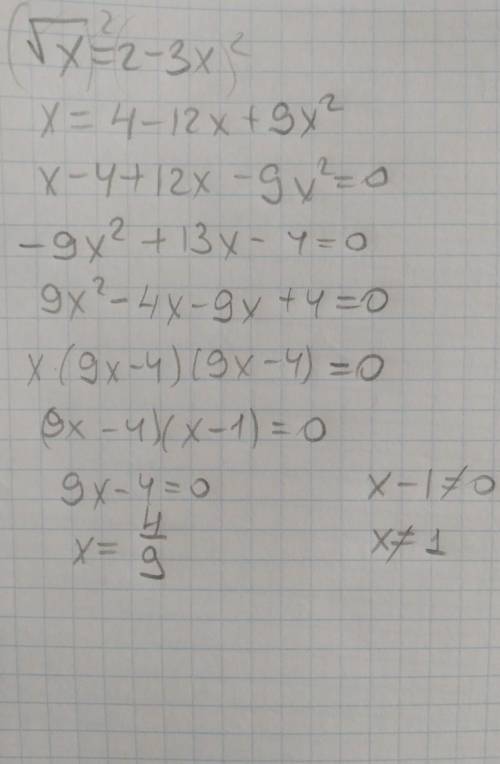 (√x)² = (2-3x)²
x = 4-12x+9x²
x-4+12x-9x²=0
-9x²+13x-4=0
9x²-4x-9x+4=0
x(9x-4)(9x-4)=0
(9x-4)(x-1)=0
9x-4=0 x-1≠0
x=4/9 x≠1